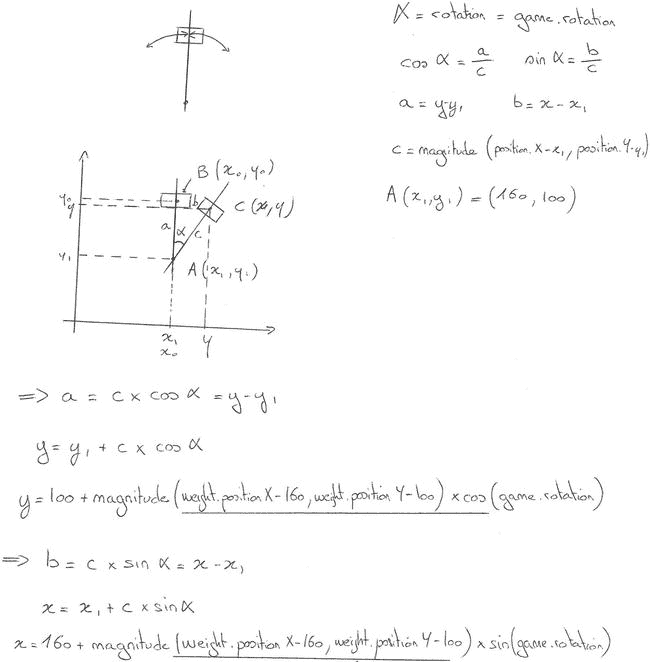 α = rotation = game.rotation
cos α = a/c sin α = b/c
a = y-y₁ b = x - x₁
c = magnitude (position.X-x₁, position.Y-y₁)
A (x₁, y₁) = (160, 100)
B (x₀, y₀)
y₀
y
b
C (x, y)
a
α
c
y₁
A (x₁, y₁)
x₁
x₀
y
=> a = c x cos α = y-y₁
y = y₁ + c x cos α
y = 100 + magnitude (weight.position X-160, weight.position Y-100) x cos (game.rotation)
=> b = c x sin α = x - x₁
x = x₁ + c x sin α
x = 160 + magnitude (weight.position X-160, weight.position Y-100) x sin (game.rotation)